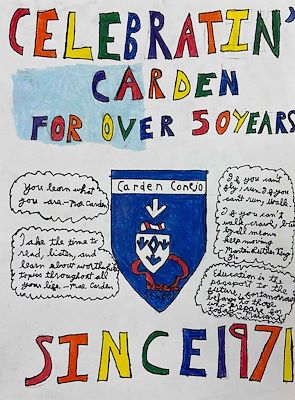 CELEBRATIN'
CARDEN
FOR OVER 50 YEARS
You learn what
you are-Mae Carden
I take the time to
read, listen, and
learn about worthwhile
topics throughout all
your life.-Mae Carden
Carden Conejo
SCHOOL
If you can't
fly, run, if you
can't run, walk.
If you can't
walk, crawl, but
by all means
keep moving
Martin Luther King
Jr.
Education is the
passport to the
future, for tomorrow
belongs to those
who prepare for
today
SINCE 1971